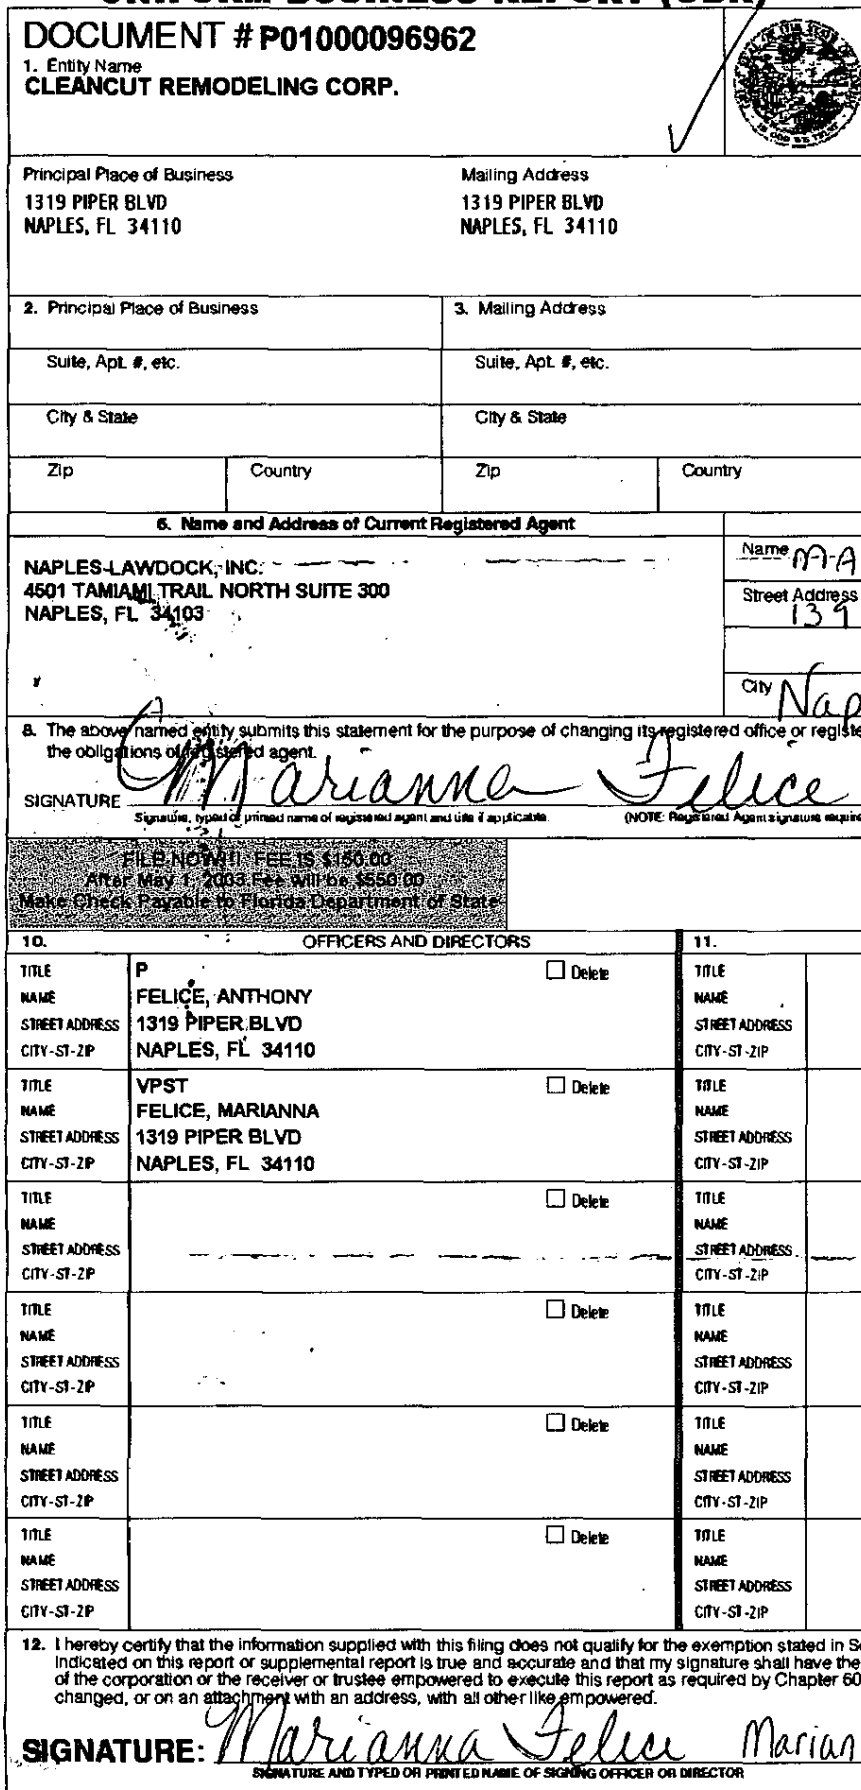 UNIFORM BUSINESS REPORT (UBR)
DOCUMENT # P01000096962
1. Entity Name
CLEANCUT REMODELING CORP.
IN GOD WE TRUST
Principal Place of Business
1319 PIPER BLVD
NAPLES, FL 34110
Mailing Address
1319 PIPER BLVD
NAPLES, FL 34110
2. Principal Place of Business
3. Mailing Address
Suite, Apt. #, etc.
Suite, Apt. #, etc.
City & State
City & State
Zip
Country
Zip
Country
6. Name and Address of Current Registered Agent
NAPLES-LAWDOCK, INC.
4501 TAMIAMI TRAIL NORTH SUITE 300
NAPLES, FL 34103
Name M-A
Street Address
139
City Nap
8. The above named entity submits this statement for the purpose of changing its registered office or registe
the obligations of registered agent.
SIGNATURE Marianna Felice
Signature, typed or printed name of registered agent and title if applicable.
(NOTE: Registered Agent signature require
FILE NOW!!! FEE IS $150.00
After May 1, 2003 Fee will be $550.00
Make Check Payable to Florida Department of State
10. OFFICERS AND DIRECTORS
11.
TITLE P Delete
NAME FELICE, ANTHONY
STREET ADDRESS 1319 PIPER BLVD
CITY-ST-ZIP NAPLES, FL 34110
TITLE
NAME
STREET ADDRESS
CITY-ST-ZIP
TITLE VPST Delete
NAME FELICE, MARIANNA
STREET ADDRESS 1319 PIPER BLVD
CITY-ST-ZIP NAPLES, FL 34110
TITLE
NAME
STREET ADDRESS
CITY-ST-ZIP
TITLE Delete
NAME
STREET ADDRESS
CITY-ST-ZIP
TITLE
NAME
STREET ADDRESS
CITY-ST-ZIP
TITLE Delete
NAME
STREET ADDRESS
CITY-ST-ZIP
TITLE
NAME
STREET ADDRESS
CITY-ST-ZIP
TITLE Delete
NAME
STREET ADDRESS
CITY-ST-ZIP
TITLE
NAME
STREET ADDRESS
CITY-ST-ZIP
TITLE Delete
NAME
STREET ADDRESS
CITY-ST-ZIP
TITLE
NAME
STREET ADDRESS
CITY-ST-ZIP
12. I hereby certify that the information supplied with this filing does not qualify for the exemption stated in Se
indicated on this report or supplemental report is true and accurate and that my signature shall have the
of the corporation or the receiver or trustee empowered to execute this report as required by Chapter 60
changed, or on an attachment with an address, with all other like empowered.
SIGNATURE: Marianna Felice Marian
SIGNATURE AND TYPED OR PRINTED NAME OF SIGNING OFFICER OR DIRECTOR